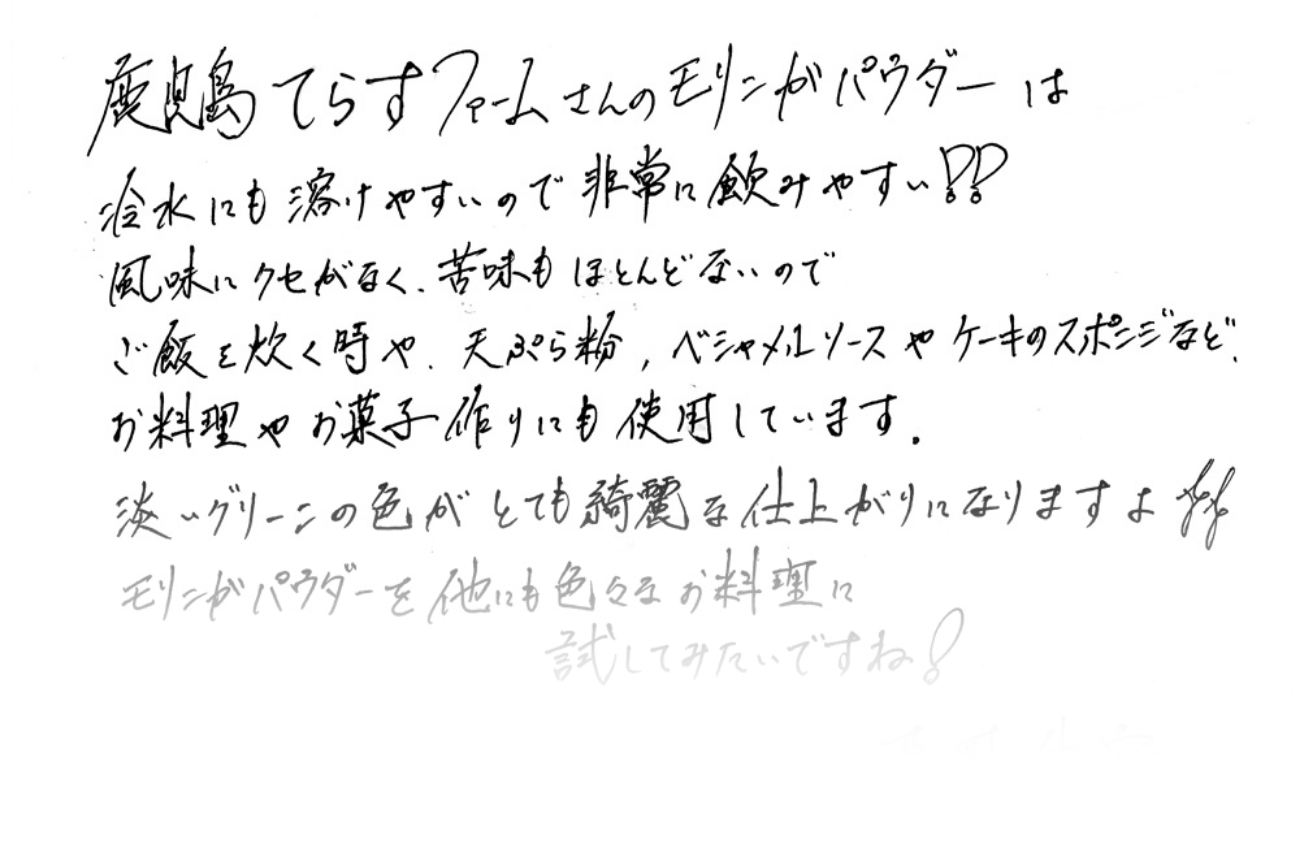 鹿児島てらすファームさんのモリンガパウダーは
冷水にも溶けやすいので非常に飲みやすい!!
風味にクセがなく、苦味もほとんどないので
ご飯を炊く時や、天ぷら粉、ベシャメルソースやケーキのスポンジなど、
お料理やお菓子作りにも使用しています。
淡いグリーンの色がとても綺麗な仕上がりになりますよ!!
モリンガパウダーを他にも色々なお料理に
試してみたいですね!